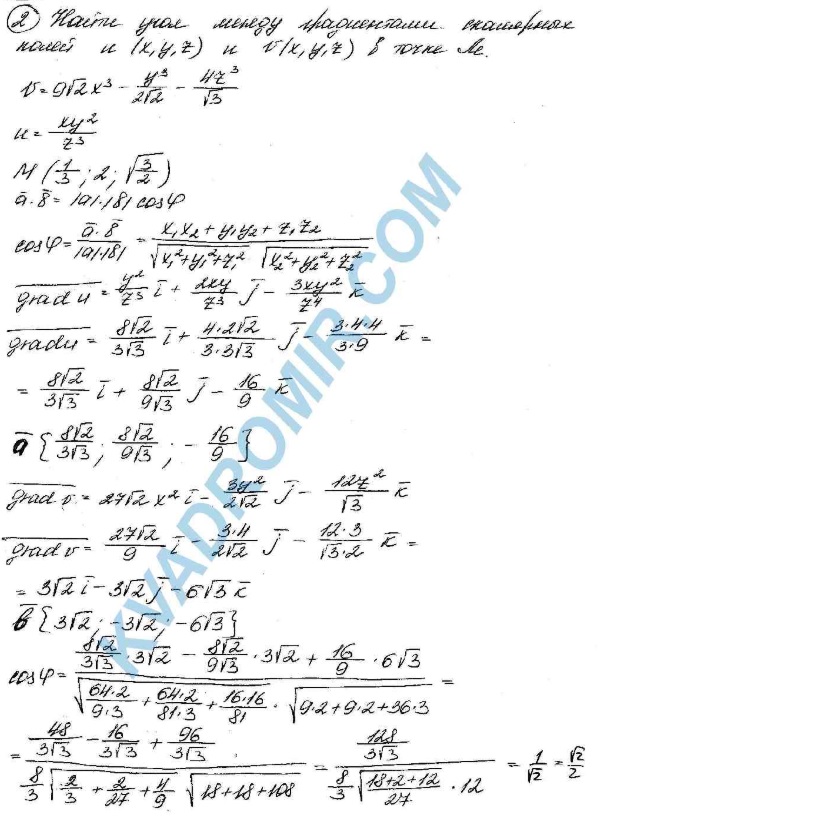 2 Найти угол между градиентами скалярных
полей u (x,y,z) и v(x,y,z) в точке M.
v = 9√2x³ − y³/2√2 − 4z³/√3
u = xy²/z³
M (1/3; 2; √3/2)
a̅·b̅ = |a|·|b| cosφ
cosφ = a̅·b̅/|a|·|b| = x₁x₂ + y₁y₂ + z₁z₂/√x₁²+y₁²+z₁² √x₂²+y₂²+z₂²
grad u = y²/z³ i̅ + 2xy/z³ j̅ − 3xy²/z⁴ k̅
grad u = 8√2/3√3 i̅ + 4·2√2/3·3√3 j̅ − 3·4·4/3·9 k̅ =
= 8√2/3√3 i̅ + 8√2/9√3 j̅ − 16/9 k̅
a̅ {8√2/3√3; 8√2/9√3; −16/9}
grad v = 27√2 x² i̅ − 3y²/2√2 j̅ − 12z²/√3 k̅
grad v = 27√2/9 i̅ − 3·4/2√2 j̅ − 12·3/√3·2 k̅ =
= 3√2 i̅ − 3√2 j̅ − 6√3 k̅
b̅ {3√2; −3√2; −6√3}
cosφ = 8√2/3√3 · 3√2 − 8√2/9√3 · 3√2 + 16/9 · 6√3/√64·2/9·3 + 64·2/81·3 + 16·16/81 · √9·2+9·2+36·3 =
= 48/3√3 − 16/3√3 + 96/3√3/8/3 √2/3 + 2/27 + 4/9 √18+18+108 = 128/3√3/8/3 √18+2+12/27 · 12 = 1/√2 = √2/2
KVADROMIR.COM